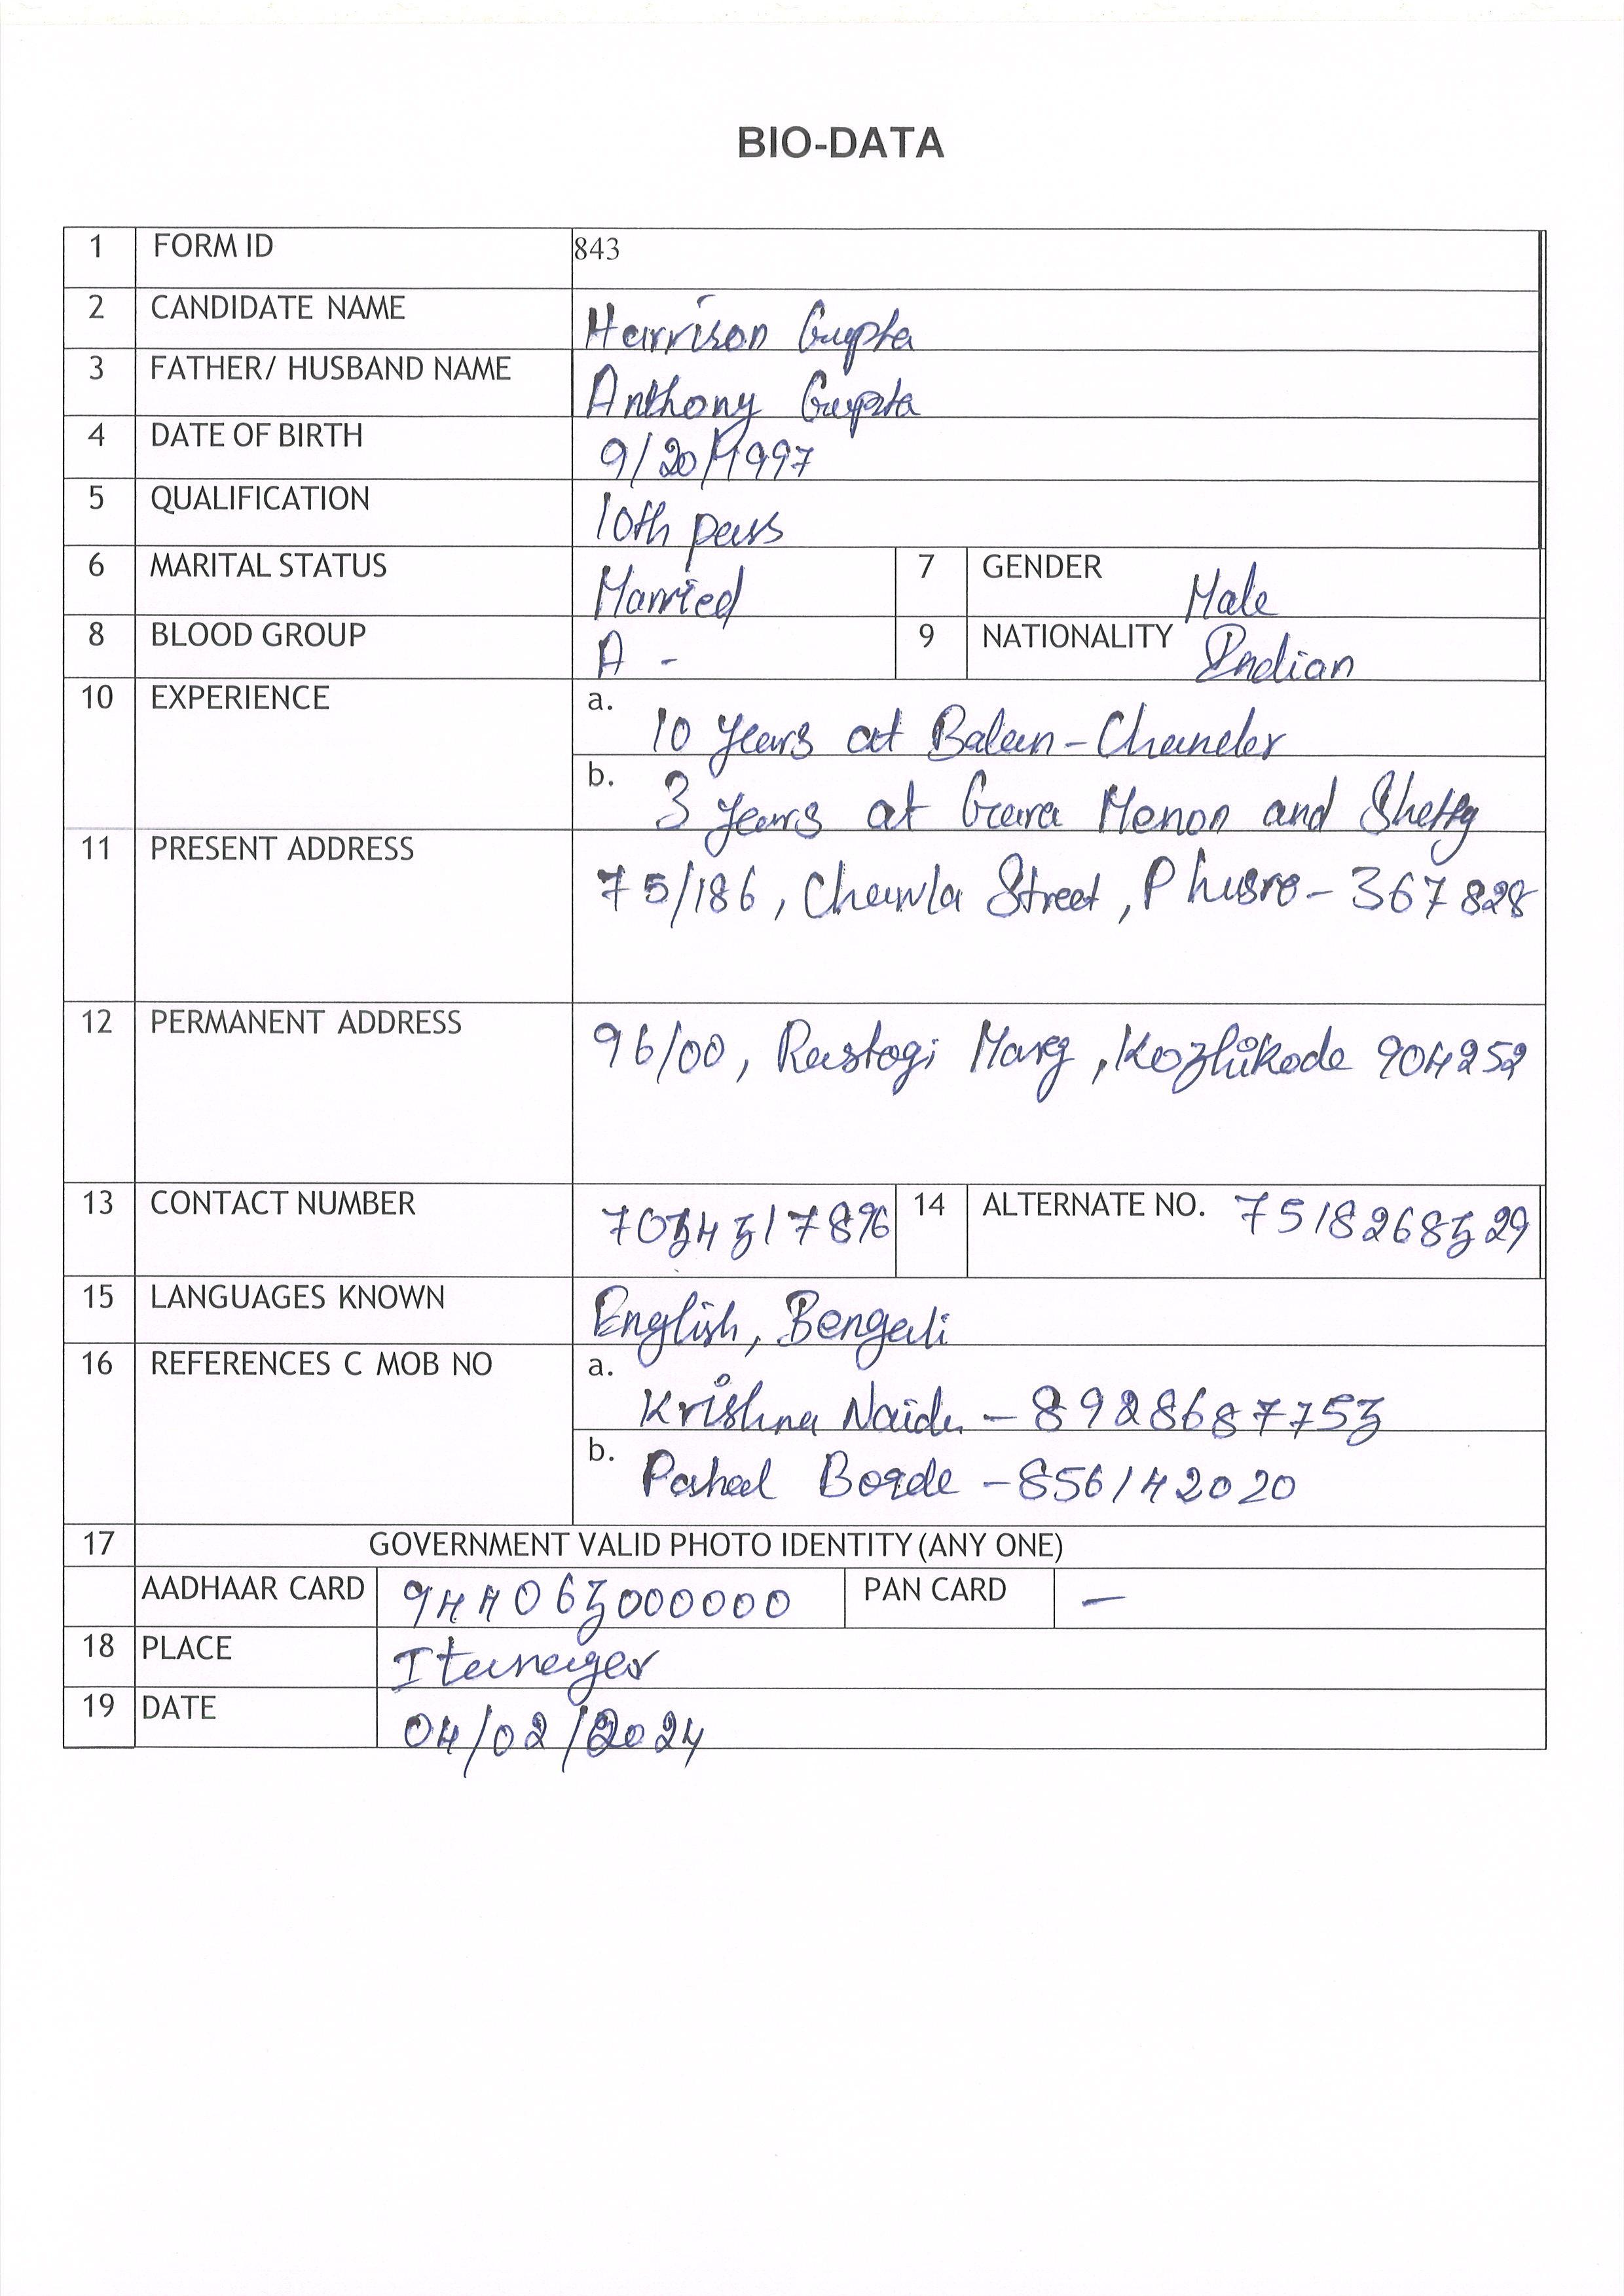 BIO-DATA
1 FORM ID 843
2 CANDIDATE NAME Harrison Gupta
3 FATHER/ HUSBAND NAME Anthony Gupta
4 DATE OF BIRTH 9/20/1997
5 QUALIFICATION 10th pass
6 MARITAL STATUS Married 7 GENDER Male
8 BLOOD GROUP A - 9 NATIONALITY Indian
10 EXPERIENCE a. 10 years at Balan-Chander
b. 3 years at Gara Menon and Shetty
11 PRESENT ADDRESS 75/186, Chawla Street, Phusro-367828
12 PERMANENT ADDRESS 96/00, Rastogi Marg, Kozhikode 904252
13 CONTACT NUMBER 7034317896 14 ALTERNATE NO. 7518268329
15 LANGUAGES KNOWN English, Bengali
16 REFERENCES C MOB NO a. Krishna Naidu - 8928687753
b. Borde - 856142020
17 GOVERNMENT VALID PHOTO IDENTITY (ANY ONE)
AADHAAR CARD 944063000000 PAN CARD —
18 PLACE Itanagar
19 DATE 04/02/2024